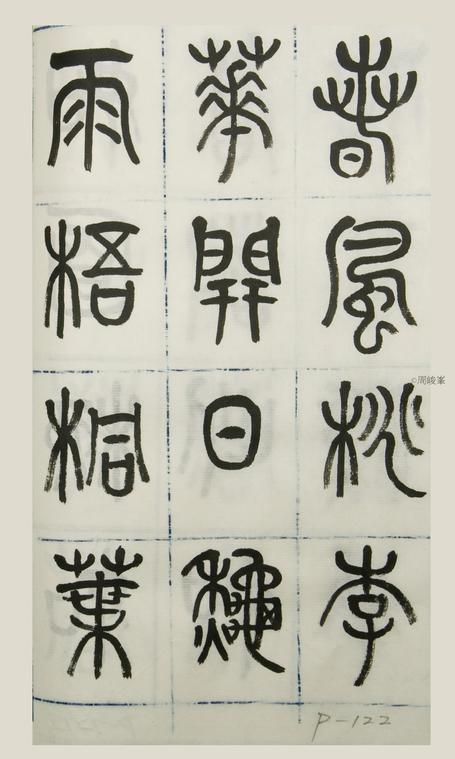 春風桃李
華開日龝
雨梧桐葉
P-122
©周峻峯